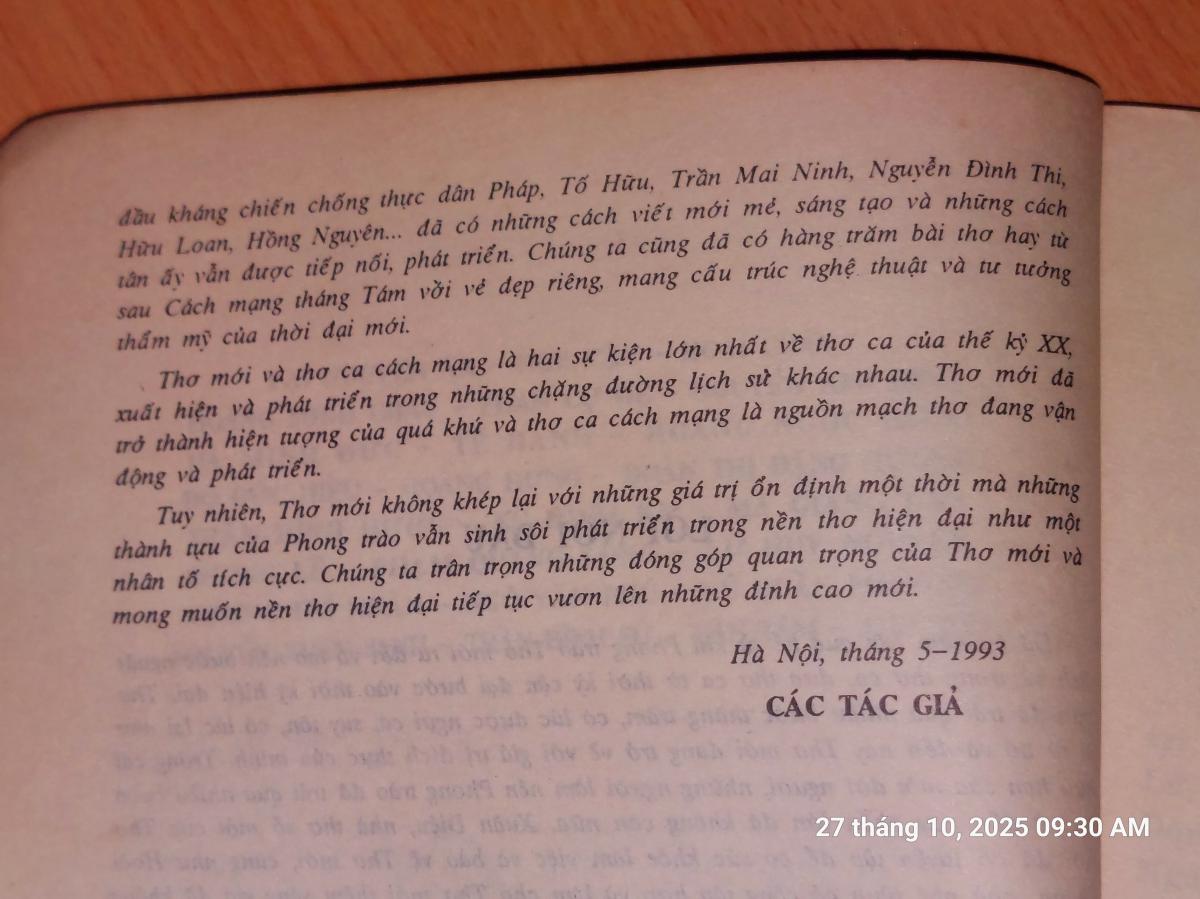 đầu kháng chiến chống thực dân Pháp, Tố Hữu, Trần Mai Ninh, Nguyễn Đình Thi,
Hữu Loan, Hồng Nguyên... đã có những cách viết mới mẻ, sáng tạo và những cách
tân ấy vẫn được tiếp nối, phát triển. Chúng ta cũng đã có hàng trăm bài thơ hay từ
sau Cách mạng tháng Tám với vẻ đẹp riêng, mang cấu trúc nghệ thuật và tư tưởng
thẩm mỹ của thời đại mới.
Thơ mới và thơ ca cách mạng là hai sự kiện lớn nhất về thơ ca của thế kỷ XX,
xuất hiện và phát triển trong những chặng đường lịch sử khác nhau. Thơ mới đã
trở thành hiện tượng của quá khứ và thơ ca cách mạng là nguồn mạch thơ đang vận
động và phát triển.
Tuy nhiên, Thơ mới không khép lại với những giá trị ổn định một thời mà những
thành tựu của Phong trào vẫn sinh sôi phát triển trong nền thơ hiện đại như một
nhân tố tích cực. Chúng ta trân trọng những đóng góp quan trọng của Thơ mới và
mong muốn nền thơ hiện đại tiếp tục vươn lên những đỉnh cao mới.
Hà Nội, tháng 5-1993
CÁC TÁC GIẢ
27 tháng 10, 2025 09:30 AM